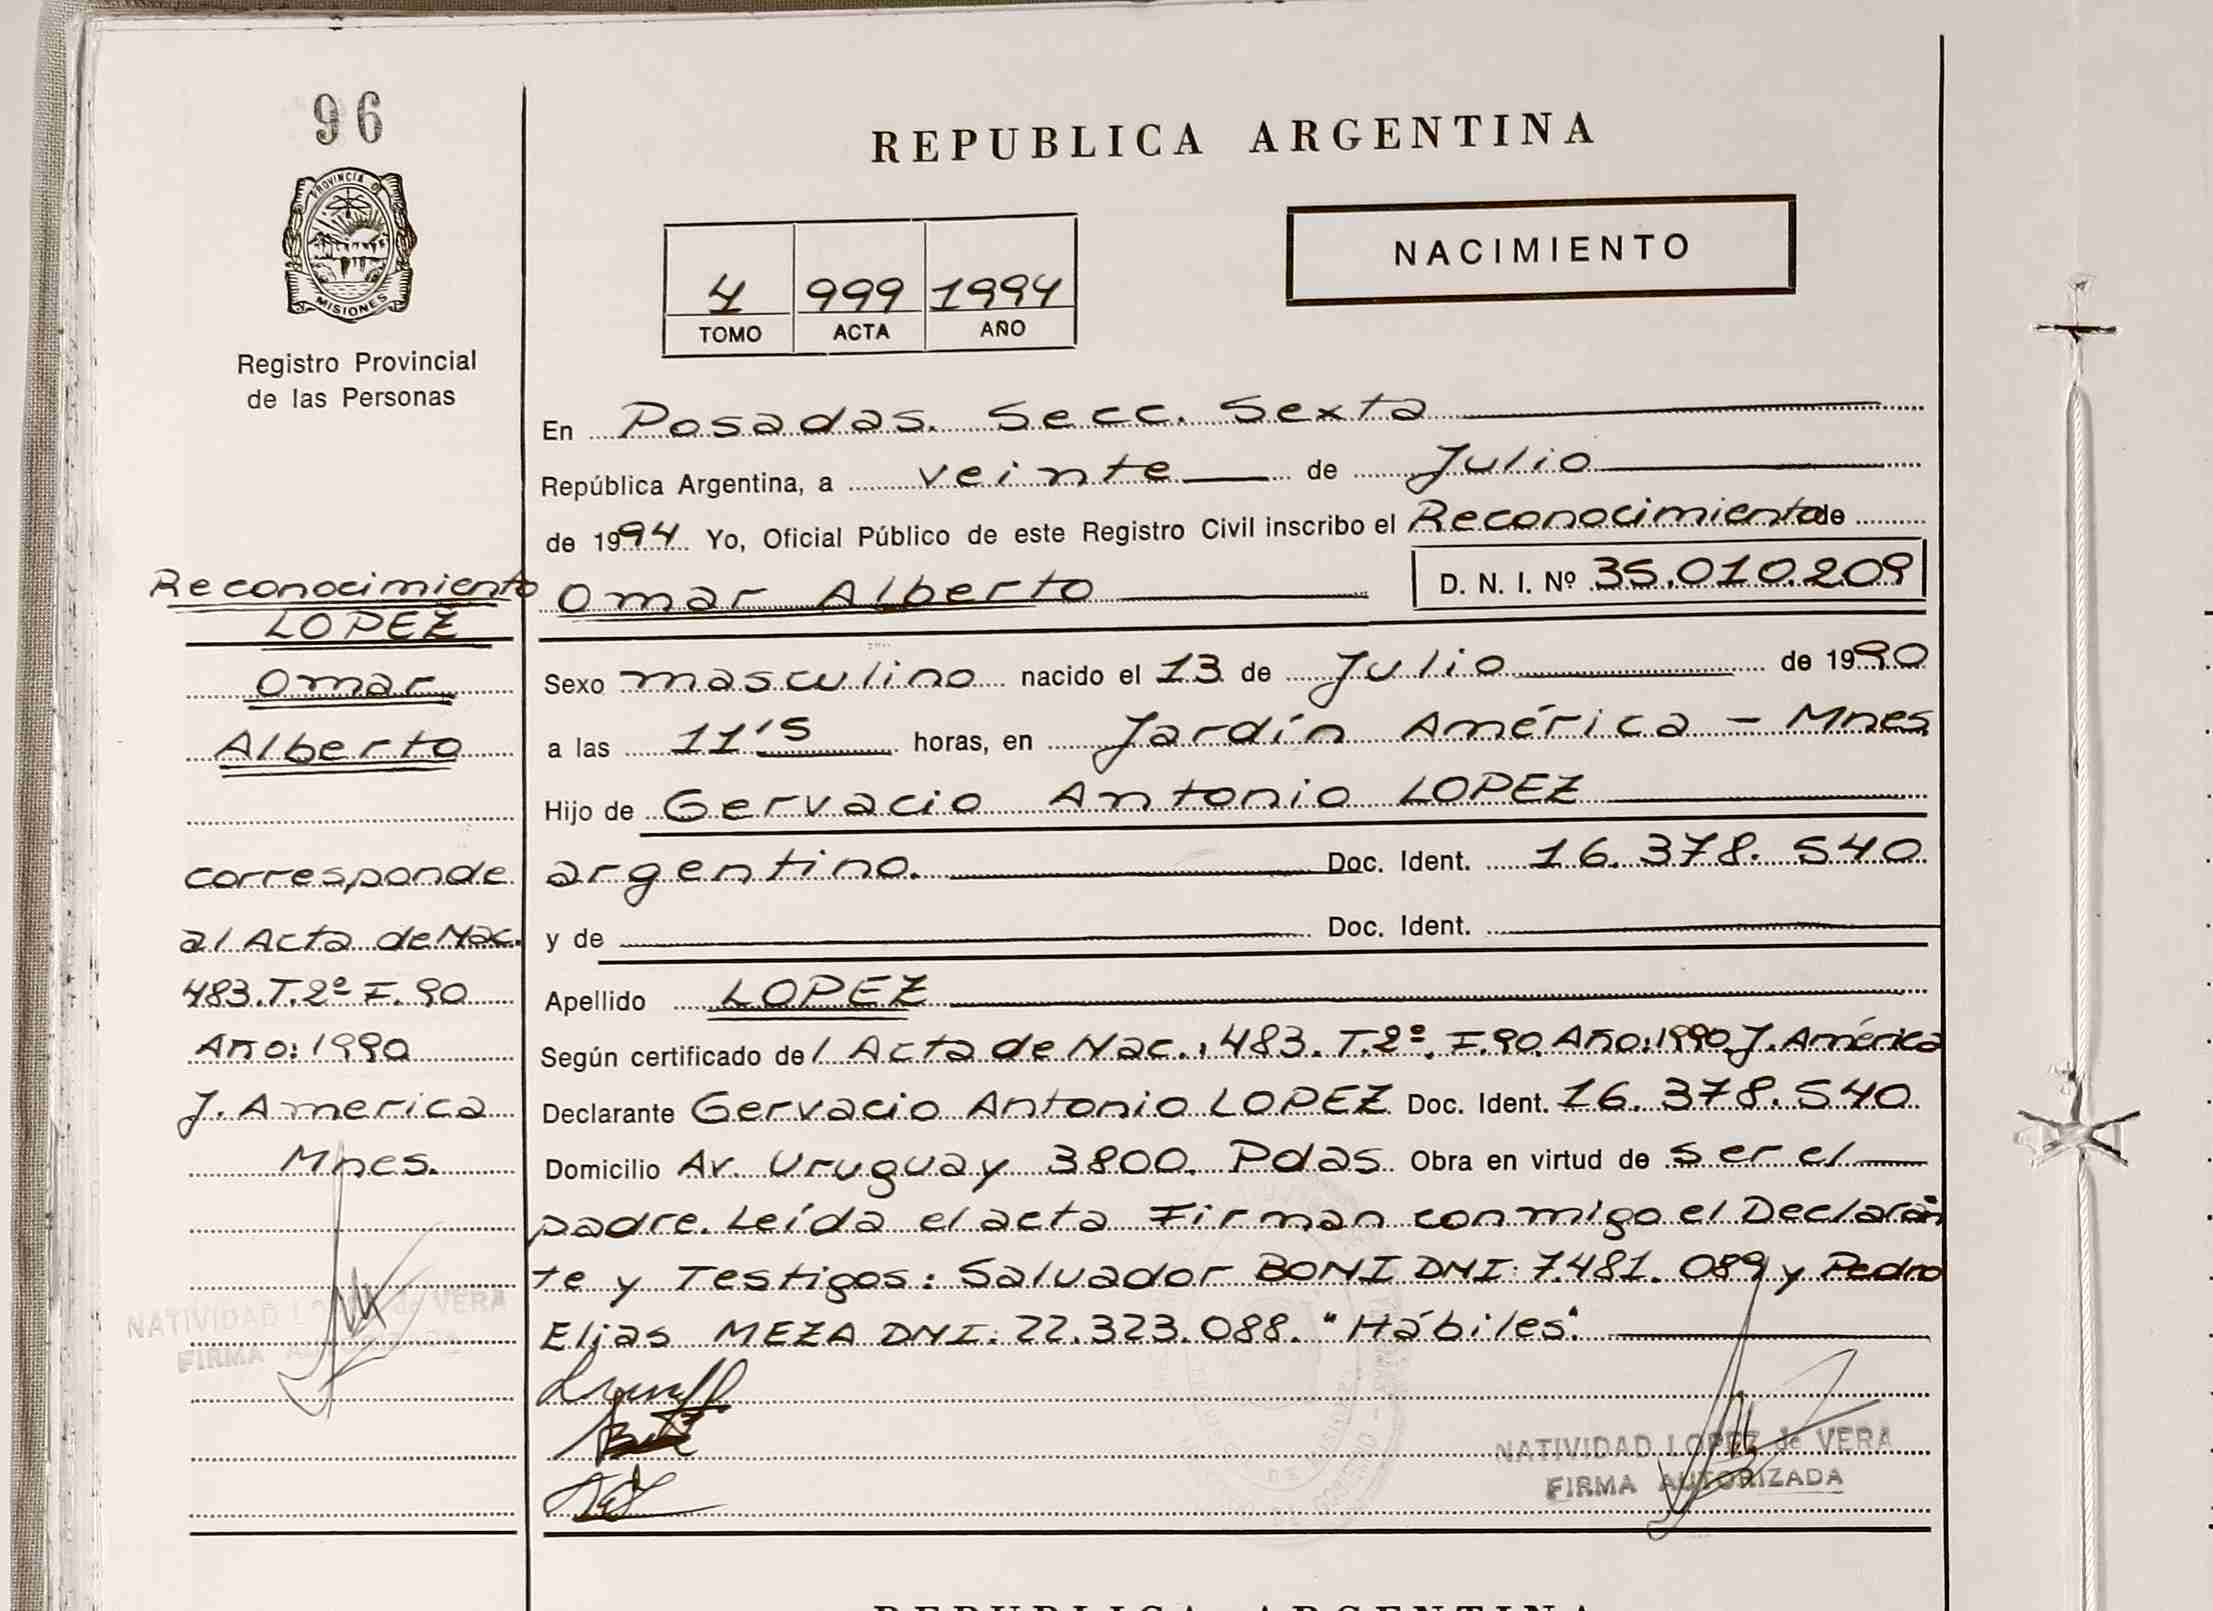 96
PROVINCIA D
MISIONES
Registro Provincial
de las Personas
Reconocimiento
LOPEZ
Omar
Alberto
corresponde
al Acta de Nac.
483.T.2º F.90
Año: 1990
J. America
Mnes.
NATIVIDAD LOPEZ de VERA
FIRMA AUTORIZADA
REPUBLICA ARGENTINA
NACIMIENTO
4 999 1994
TOMO ACTA AÑO
En Posadas. Secc. Sexta
República Argentina, a veinte de Julio
de 1994 Yo, Oficial Público de este Registro Civil inscribo el Reconocimiento de
Omar Alberto D. N. I. Nº 35.010.209
Sexo masculino nacido el 13 de Julio de 1990
a las 11'15 horas, en Jardín América - Mnes
Hijo de Gervacio Antonio LOPEZ
argentino. Doc. Ident. 16.378.540
y de Doc. Ident.
Apellido LOPEZ
Según certificado del Acta de Nac.: 483. T.2º. F.90. Año:1990 J. América
Declarante Gervacio Antonio LOPEZ Doc. Ident. 16.378.540
Domicilio Av. Uruguay 3800. Pdas Obra en virtud de ser el
padre. Leída el acta Firman conmigo el Declaran
te y Testigos: Salvador BONI DNI: 7.481.089 y Pedro
Elias MEZA DNI: 22.323.088. "Hábiles".
NATIVIDAD LOPEZ de VERA
FIRMA AUTORIZADA
REPUBLICA ARGENTINA